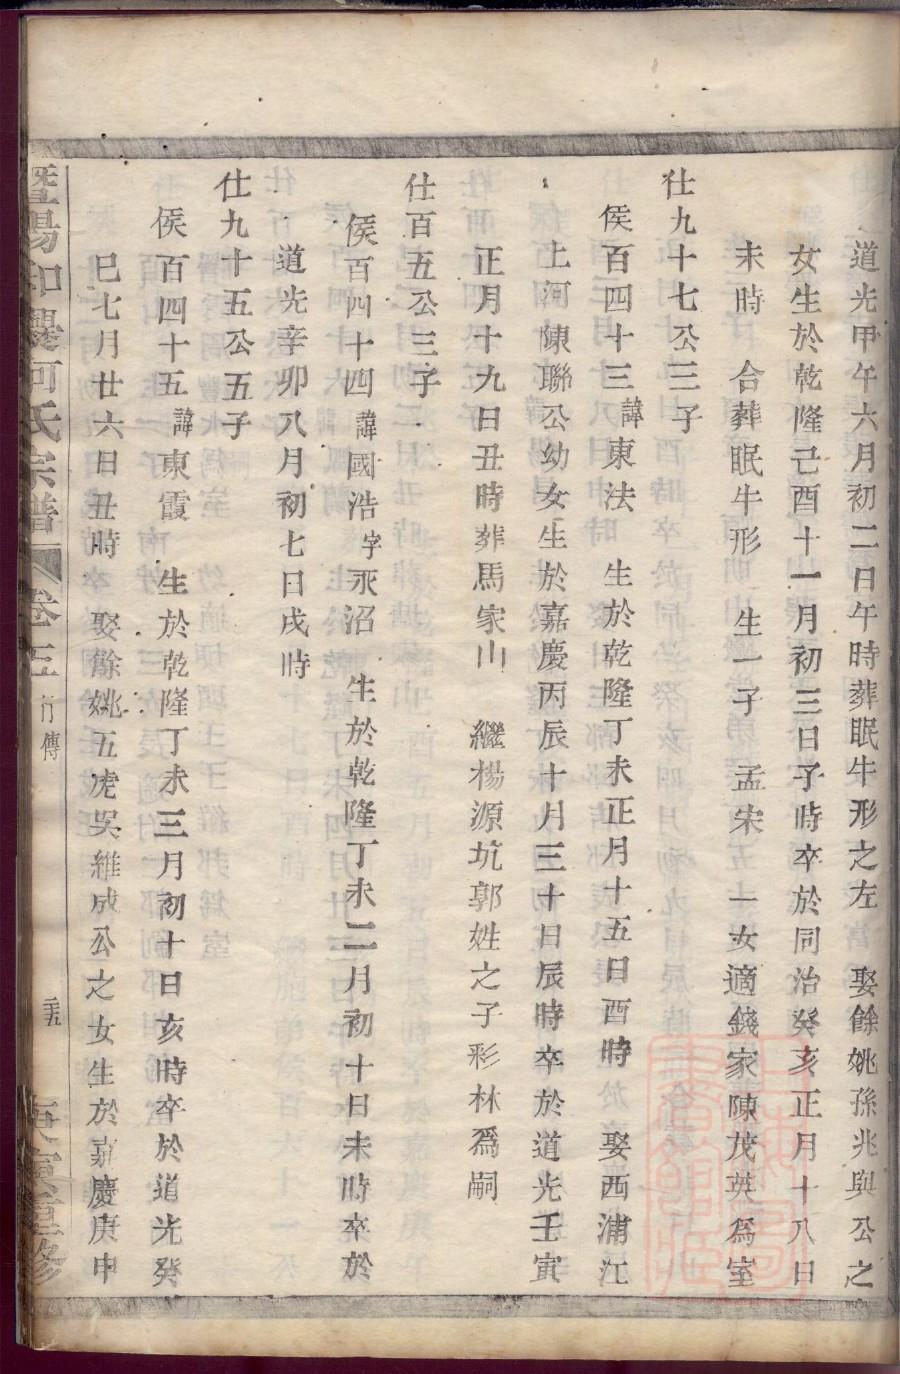 道光甲午六月初二日午時葬眠牛形之左　娶餘姚孫兆與公之
女生於乾隆己酉十一月初三日子時卒於同治癸亥正月十八日
未時　合葬眠牛形　生一子　孟宋　一女適錢家陳茂英爲室
仕九十七公三子
侯百四十三諱東法　生於乾隆丁未正月十五日酉時　娶西浦江
上河陳聯公幼女生於嘉慶丙辰十月三十日辰時卒於道光壬寅
正月十九日丑時葬馬家山　繼楊源坑郭姓之子彩林爲嗣
仕百五公三子
侯百四十四諱國浩字永沼　生於乾隆丁未二月初十日未時卒於
道光辛卯八月初七日戌時
仕九十五公五子
侯百四十五諱東霞　生於乾隆丁未三月初十日亥時卒於道光癸
巳七月廿六日丑時　娶餘姚五虎吳維成公之女生於嘉慶庚申
暨陽和爨何氏宗譜　卷三　行傳　三五　寅重修